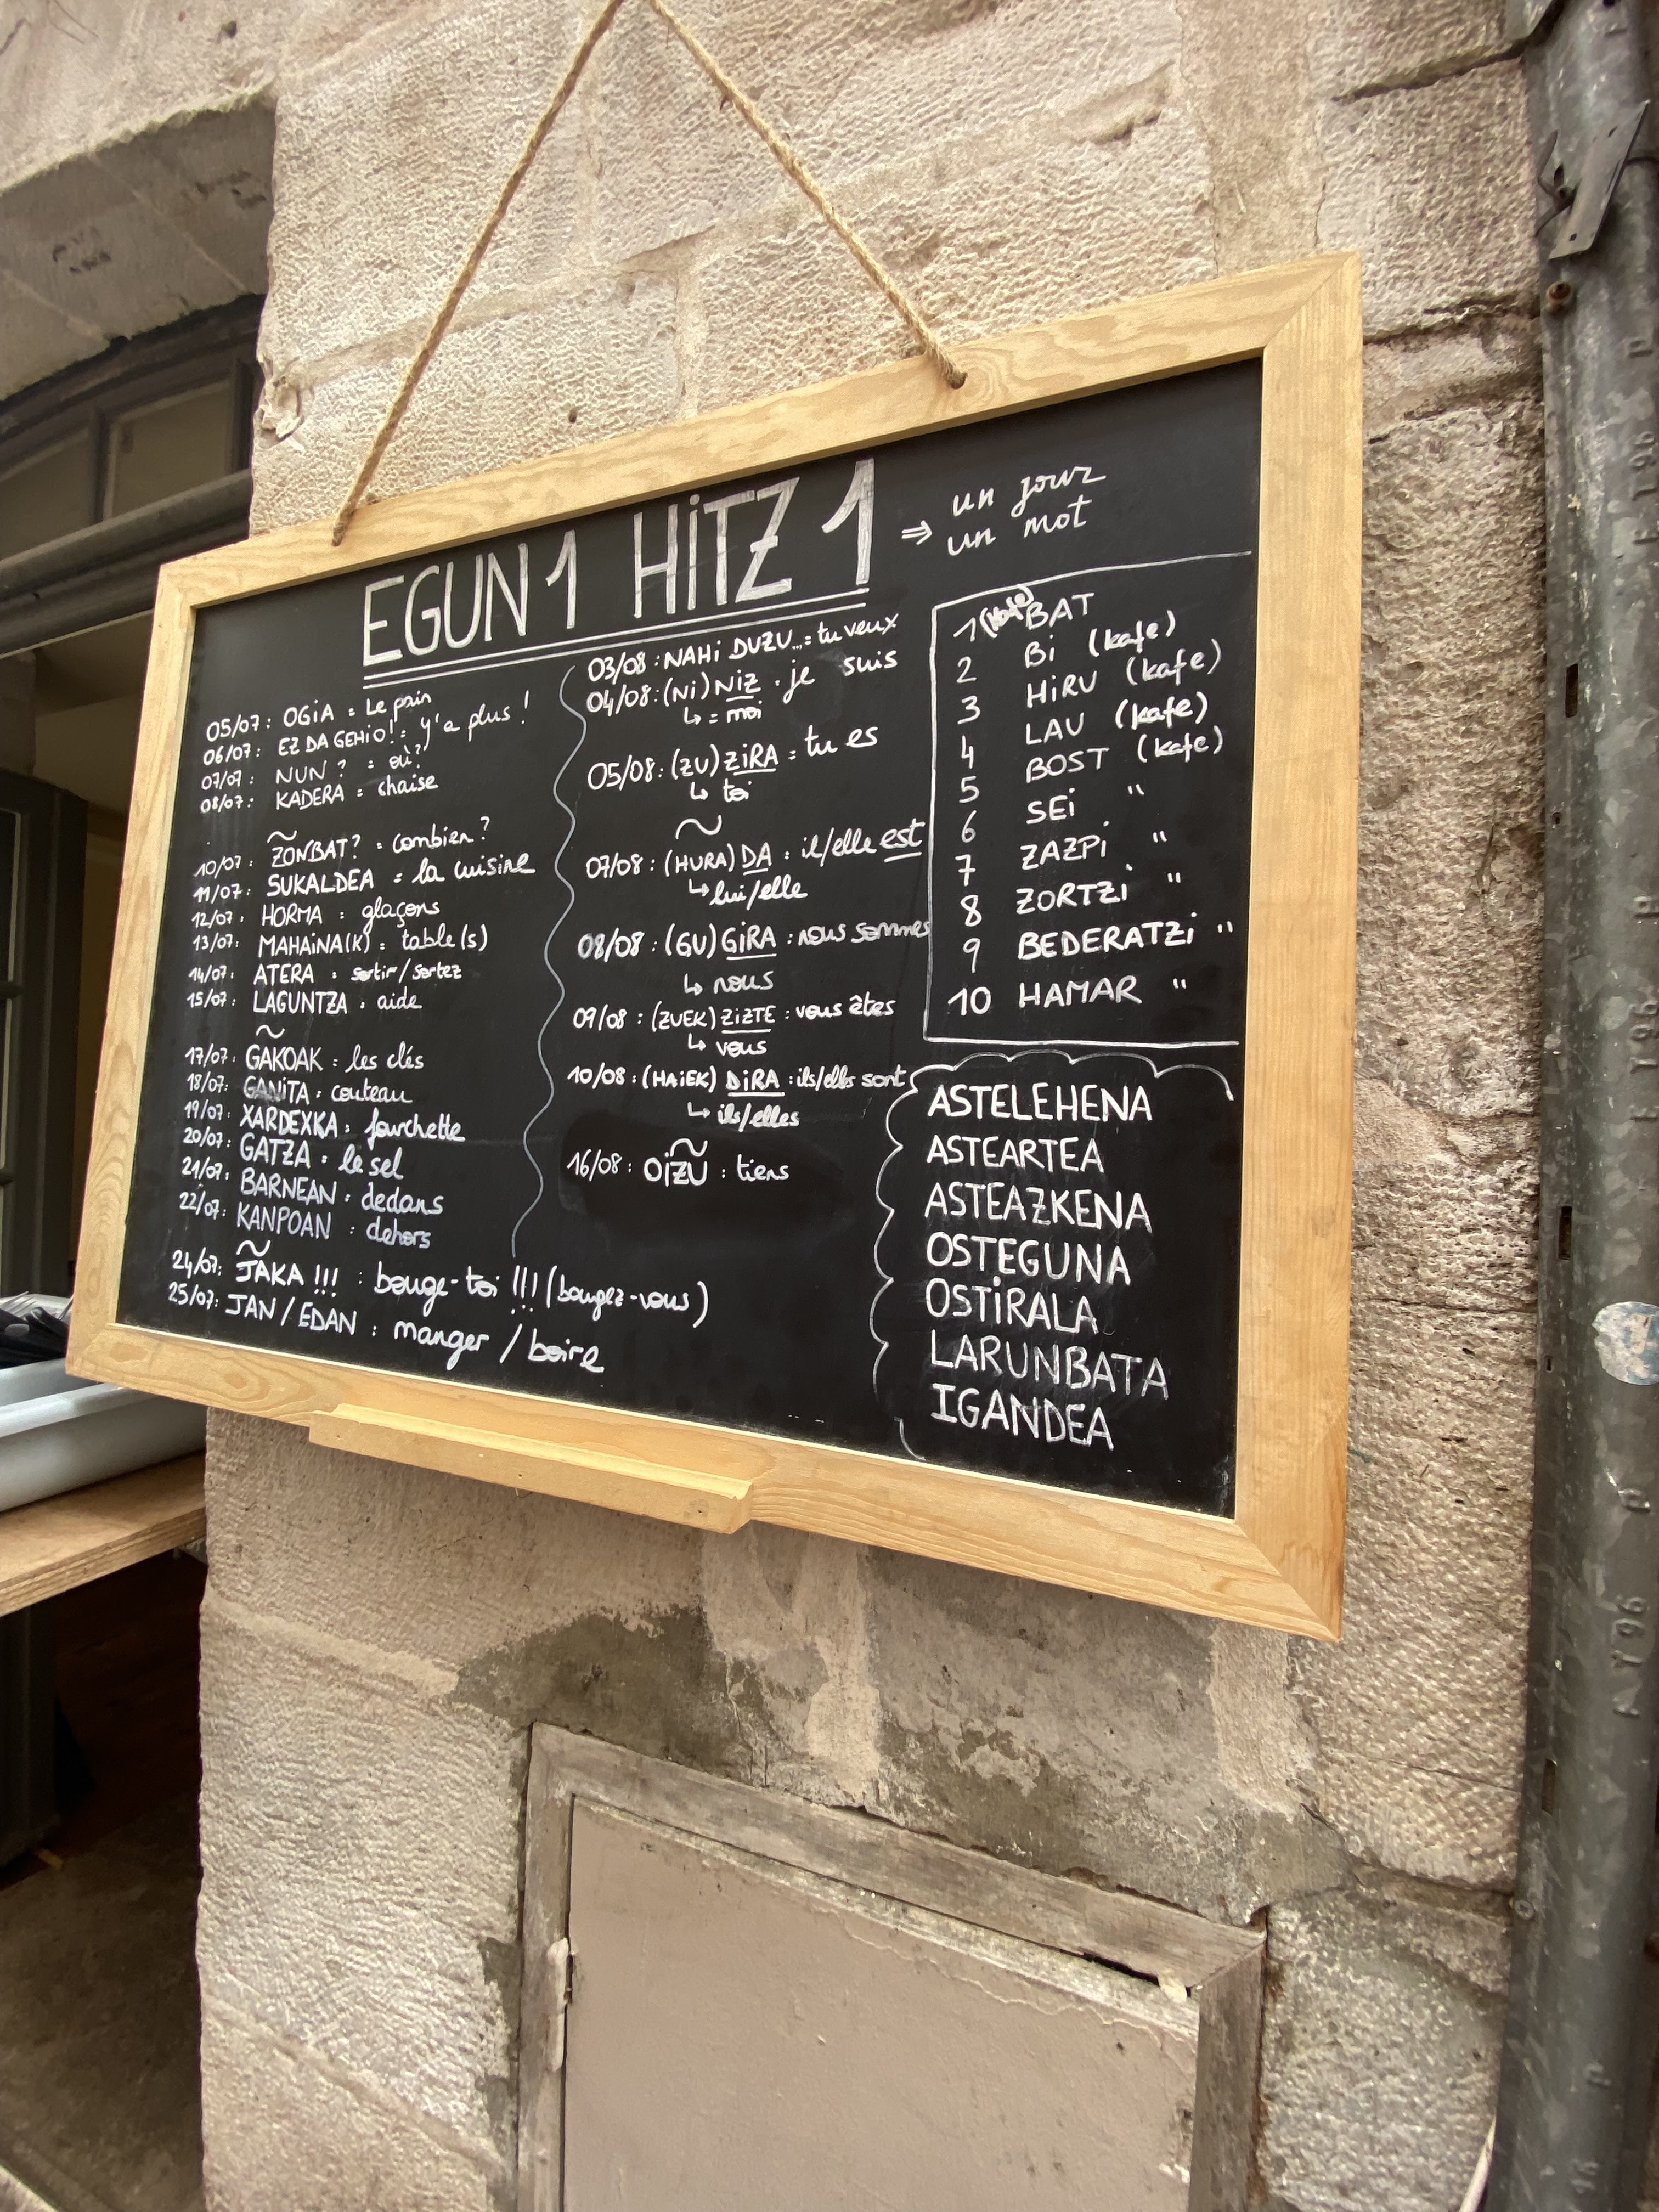 EGUN 1 HITZ 1 ⇒ un jour
un mot
05/07 : OGIA = Le pain
06/07 : EZ DA GEHIO ! = y'a plus !
07/07 : NUN ? = où ?
08/07 : KADERA = chaise
~
10/07 : ZONBAT ? = combien ?
11/07 : SUKALDEA = la cuisine
12/07 : HORMA = glaçons
13/07 : MAHAINA(K) = table(s)
14/07 : ATERA = sortir/sortez
15/07 : LAGUNTZA = aide
~
17/07 : GAKOAK = les clés
18/07 : GANITA = couteau
19/07 : XARDEXKA = fourchette
20/07 : GATZA = le sel
21/07 : BARNEAN = dedans
22/07 : KANPOAN = dehors
~
24/07 : JAKA !!! : bouge-toi !!! (bougez-vous)
25/07 : JAN / EDAN : manger / boire
03/08 : NAHI DUZU... = tu veux
04/08 : (NI) NIZ = je suis
↳ = moi
05/08 : (ZU) ZIRA = tu es
↳ toi
~
07/08 : (HURA) DA = il/elle est
↳ lui/elle
08/08 : (GU) GIRA : nous sommes
↳ nous
09/08 : (ZUEK) ZIZTE : vous êtes
↳ vous
10/08 : (HAIEK) DIRA : ils/elles sont
↳ ils/elles
~
16/08 : OIZU : tiens
1 (kafe) BAT
2 BI (kafe)
3 HIRU (kafe)
4 LAU (kafe)
5 BOST (kafe)
6 SEI "
7 ZAZPI "
8 ZORTZI "
9 BEDERATZI "
10 HAMAR "
ASTELEHENA
ASTEARTEA
ASTEAZKENA
OSTEGUNA
OSTIRALA
LARUNBATA
IGANDEA